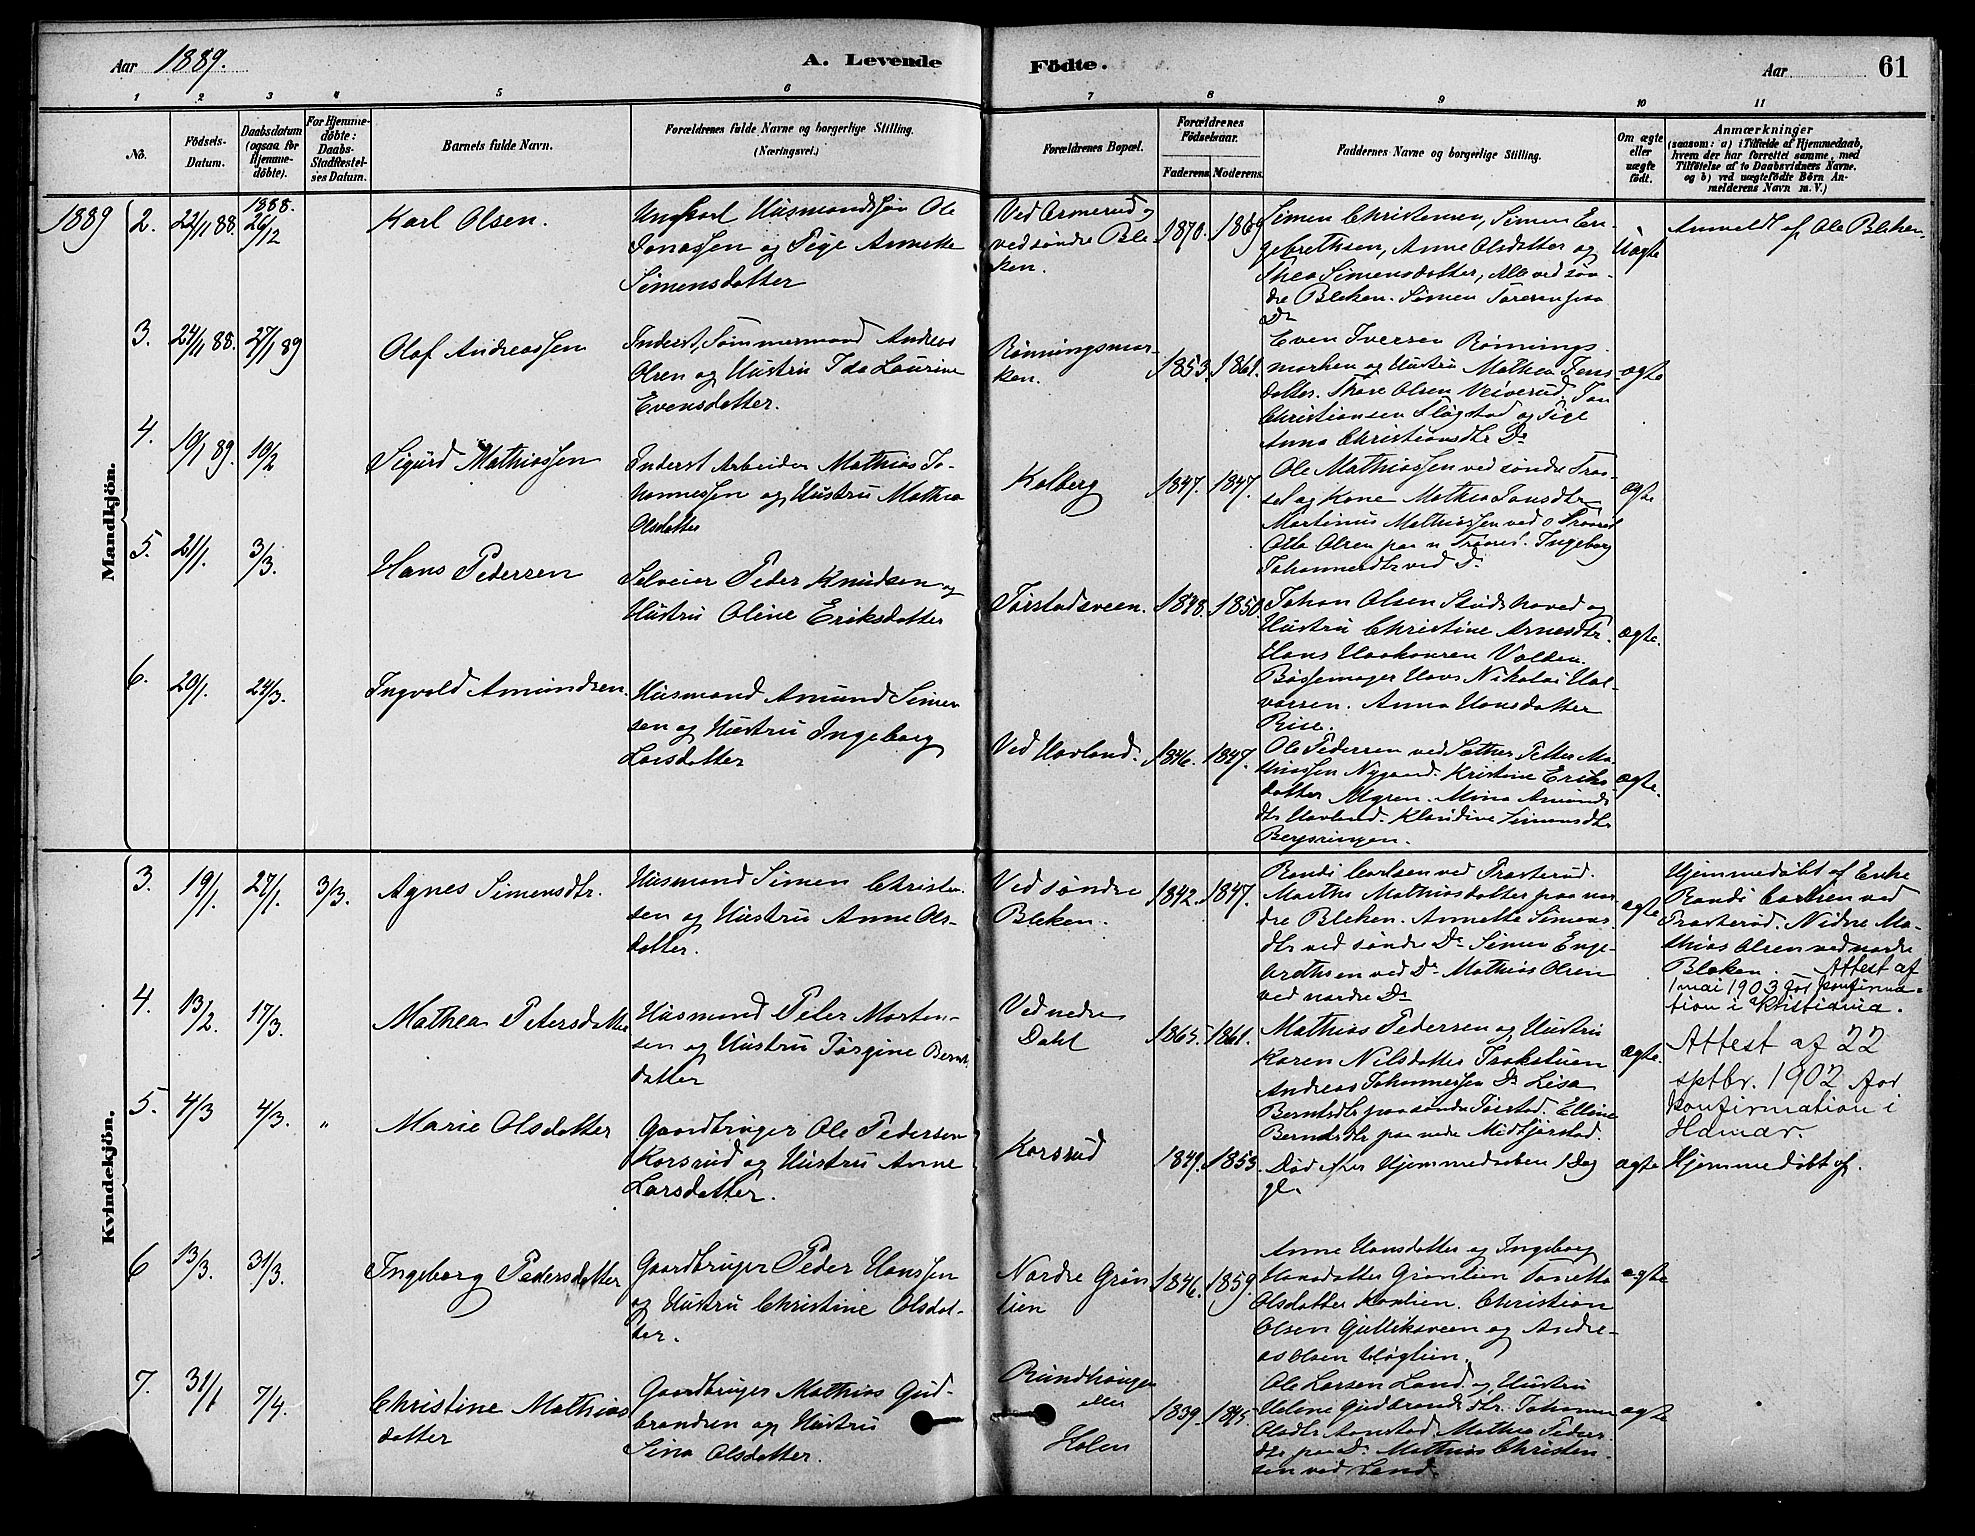 Aar 1889. A. Levende Födte. Aar 61
1 2 3 4 5 6 7 8 9 10 11
No.
Födsels-
Datum.
Daabsdatum
(ogsaa for
Hjemme-
döbte).
For Hjemme-
döbte:
Daabs-
Stadfæstel-
ses Datum.
Barnets fulde Navn.
Forældrenes fulde Navne og borgerlige Stilling.
(Næringsvei.)
Forældrenes Bopæl.
Forældrenes
Födselsaar.
Faderens. Moderens.
Faddernes Navne og borgerlige Stilling.
Om ægte
eller
uægte
födt.
Anmærkninger
(saasom: a) i Tilfælde af Hjemmedaab,
hvem der har forrettet samme, med
Tilföielse af to Daabsvidners Navne,
og b) ved uægtefödte Börn An-
melderens Navn m. V.)
Mandkjön.
1889 2. 22/11 88. 1888. 26/12
Karl Olsen.
Ungkarl Husmandssøn Ole
Jonassen og Pige Annette
Simensdatter
Ved
ved søndre Ble-
ken.
1870. 1869
Simen Christensen, Simen En-
gebrethsen, Anne Olsdatter og
Thea Simensdatter, Alle ved søn-
dre Bleken. Simen
Dr
Uægte
Anmeldt af Ole Bleken.
3. 24/11 88. 27/1 89
Olaf Andreassen
Inderst, Tømmermand Andreas
Olsen og Hustru Ida Laurine
Evensdatter.
Rønningsmar-
ken.
1853. 1861.
Even Iversen Rønnings-
marken og Hustru Mathea Jens-
datter. Thore Olsen
Christiansen Sløgstad og Pige
Anna Christiansdtr Dr
ægte
4. 19/1 89. 10/2
Sigurd Mathiassen
Inderst Arbeider Mathias Jo-
hannessen og Hustru Mathia
Olsdatter
Kolberg
1847. 1847.
Ole Mathiassen ved søndre
og Kone Mathea
Martinus Mathiassen ved
Otto Olsen paa n Ingeborg
Johannesdtr ved Dr
ægte
5. 21/1. 3/3.
Hans Pedersen
Selveier Peder Knudsen og
Hustru Oline Eriksdatter
Tørstadsveen. 1850.
Johan Olsen Stadshoved og
Hustru Christine Arnesdtr.
Hans Haakonsen Volden.
Bøssemager Hans Nikolai Hal-
vorsen. Anna Hansdatter
Rise.
ægte.
6. 20/1. 24/3.
Ingvald Amundsen.
Husmand Amund Simen-
sen og Hustru Ingeborg
Larsdatter
Ved Hovland.
1846. 1847.
Ole Pedersen ved Sæther Petter Ma-
thiassen Nygaard. Kristine Eriks
datter Mina Amunds
dtr Hovland. Klaudine Simensdtr
Bergsringen.
ægte.
Kvindekjön.
3. 19/1. 27/1. 3/3.
Agnes Simensdtr.
Husmand Simen Christen-
sen og Hustru Anne Ols-
datter.
Ved søndre
Bleken.
1842. 1847.
Randi Carlsen ved Prasterud.
Marthe Mathiasdatter paa nor-
dre Bleken. Annette Simens-
dtr ved søndre Dr Simen Enge-
brethsen ved Dr Mathias Olsen
ved nordre Dr
ægte
Hjemmedøbt af Enke
Randi Carlsen ved
Prasterud. Vidne Ma-
thias Olsen ved nordre
Bleken. Attest af
1 mai 1903 for konfirma-
tion i Kristiania.
4. 13/2. 17/3.
Mathea Petersdatter
Husmand Peter Morten-
sen og Hustru Jørgine Bernts-
datter
Ved nedre
Dahl
1865. 1861.
Mathias Pedersen og Hustru
Karen Nilsdatter
Andreas Johannessen Dr Lisa
Berntsdtr paa søndre Tørstad. Elline
Berntsdtr paa nedre Midtjørstad.
ægte.
Attest af 22
sptbr. 1902 for
konfirmation i
Hamar.
5. 4/3 4/3. „
Marie Olsdatter
Gaardbruger Ole Pedersen
Korsrud og Hustru Anne
Larsdatter.
Korsrud
1849. 1853.
Død efter Hjemmedaaben 1 Dag
gl.
ægte
Hjemmedøbt af.
6 13/3. 31/3.
Ingeborg Pedersdatter
Gaardbruger Peder Hanssen
og Hustru Christine Olsdat-
ter.
Nordre Grøn-
lien
1846. 1859.
Anne Hansdatter og Ingeborg
Hansdatter Grønlien
Olsdatter Christian
Olsen Gulliksveen og Andre-
as Olsen
ægte
7. 31/1 7/4.
Christine Mathias
datter
Gaardbruger Mathias Gud-
brandsen og Hustru
Sina Olsdatter.
Rundhaugen
eller
Holen
1839. 1845.
Ole Larsen Land og Hustru
Helene Gudbrandsdtr. Johanne
Olsdtr Mathea Peders-
dtr paa Dr. Mathias Christen-
sen ved Land.
ægte